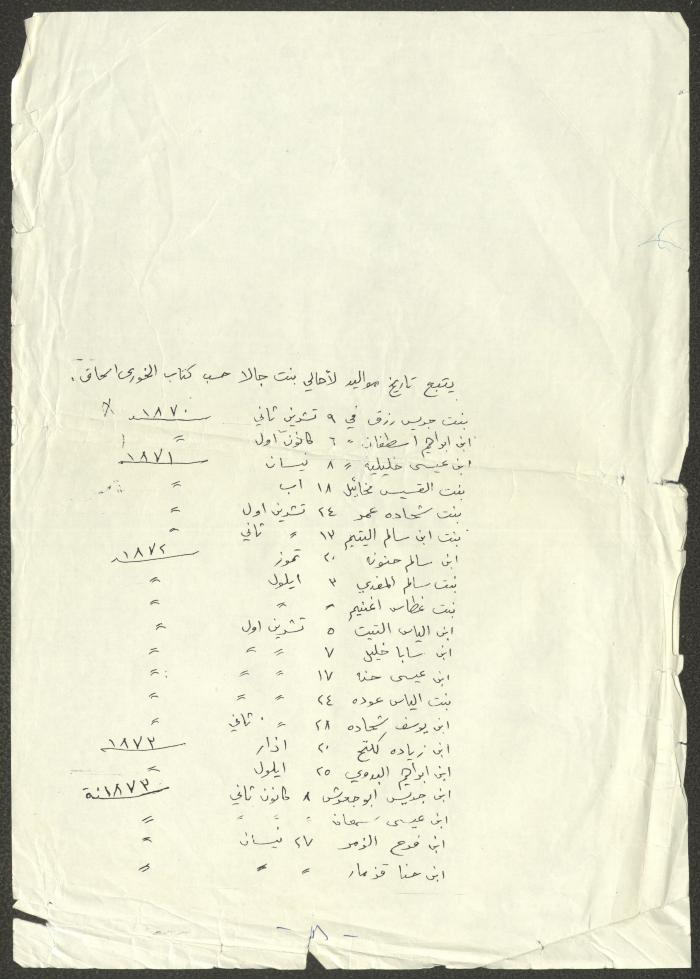 يتبع تاريخ مواليد لأهالي بنت جالا حسب كتاب الخوري اسحاق .
بنت جريس رزق في ٩ تشرين ثاني ١٨٧٠
ابن ابراهيم اسطفان 〃 ٦ كانون اول 〃
ابن عيسى خليلية 〃 ٨ نيسان ١٨٧١
بنت القسيس مخائيل ١٨ اب 〃
بنت شحاده عمر ٢٤ تشرين اول 〃
بنت ابن سالم اليتيم ١٣ 〃 ثاني 〃
ابن سالم حنونه ٢٠ تموز ١٨٧٢
بنت سالم المغدي ٣ ايلول 〃
بنت غطاس اغنيم 〃 〃 〃
ابن الياس التيت ٥ تشرين اول 〃
ابن سابا خليل ٧ 〃 〃 〃
ابن عيسى حنه ١٧ 〃 〃 〃
بنت الياس عوده ٢٤ 〃 〃 〃
ابن يوسف شحاده ٢٨ 〃 ثاني 〃
ابن زياده ٢٠ اذار ١٨٧٣
ابن ابراهيم البدوي ٢٥ ايلول 〃
ابن جريس ابو جغوش ٨ كانون ثاني ١٨٧٣نة
ابن عيسى سمعان 〃 〃 〃 〃
ابن فرح الزمر ٢٧ نيسان 〃
ابن حنا قزمار 〃 〃 〃
- ١٨ -